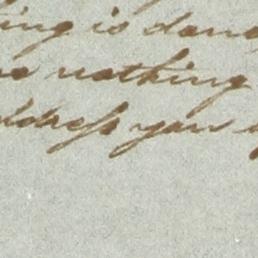 ing is done
nothing
ddress you